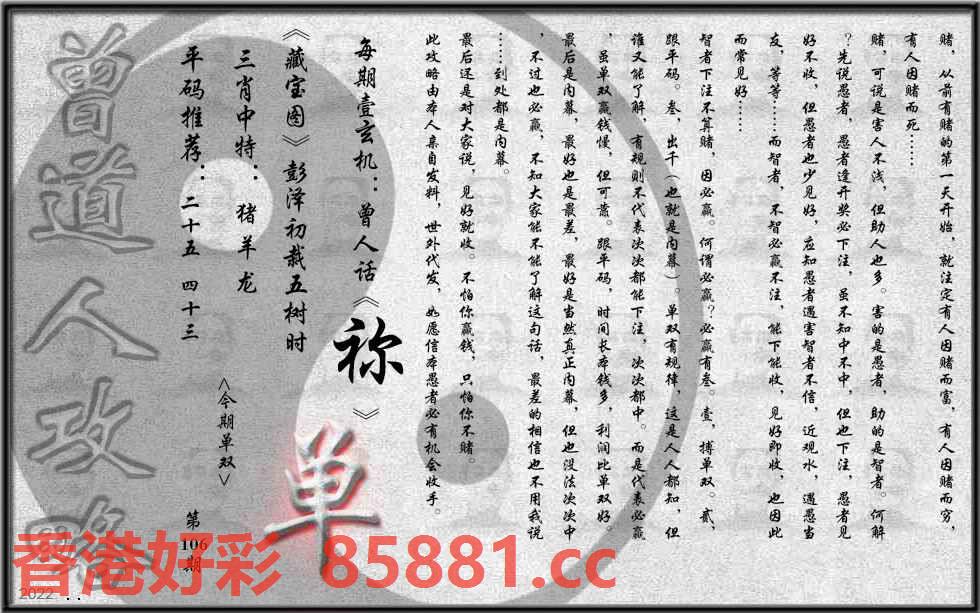 赌，从前有赌的第一天开始，就注定有人因赌而富，有人因赌而穷，
有人因赌而死……
赌，可说是害人不浅，但助人也多。害的是愚者，助的是智者。何解
？先说愚者，愚者逢开奖必下注，虽不知中不中，但也下注，愚者见
好不收，但愚者也少见好，应知愚者遇害智者不信，近观水，遇愚当
友，等等……而智者，不智必赢不注，能下能收，见好即收，也因此
而常见好……
智者下注不算赌，因必赢。何谓必赢？必赢有叁。壹，搏单双。贰，
跟平码。叁，出千（也就是内幕）。单双有规律，这是人人都知，但
谁又能了解，有规则不代表次次都能下注，次次都中。而是代表必赢
，虽单双赢钱慢，但可靠。跟平码，时间长本钱多，利润比单双好。
最后是内幕，最好也是最差，最好是当然真正内幕，但也没法次次中
，不过也必赢，不知大家能不能了解这句话，最差的相信也不用我说
……到处都是内幕。
最后还是对大家说，见好就收。不怕你赢钱，只怕你不赌。
此攻略由本人亲自发料，世外代发，如愿信本愚者必有机会收手。
每期壹玄机：曾人话《祢》
《藏宝图》彭泽初栽五树时
三肖中特：猪羊龙
平码推荐：二十五 四十三
<今期单双>
单
第106期
曾道人攻略
香港好彩 85881.cc
2022